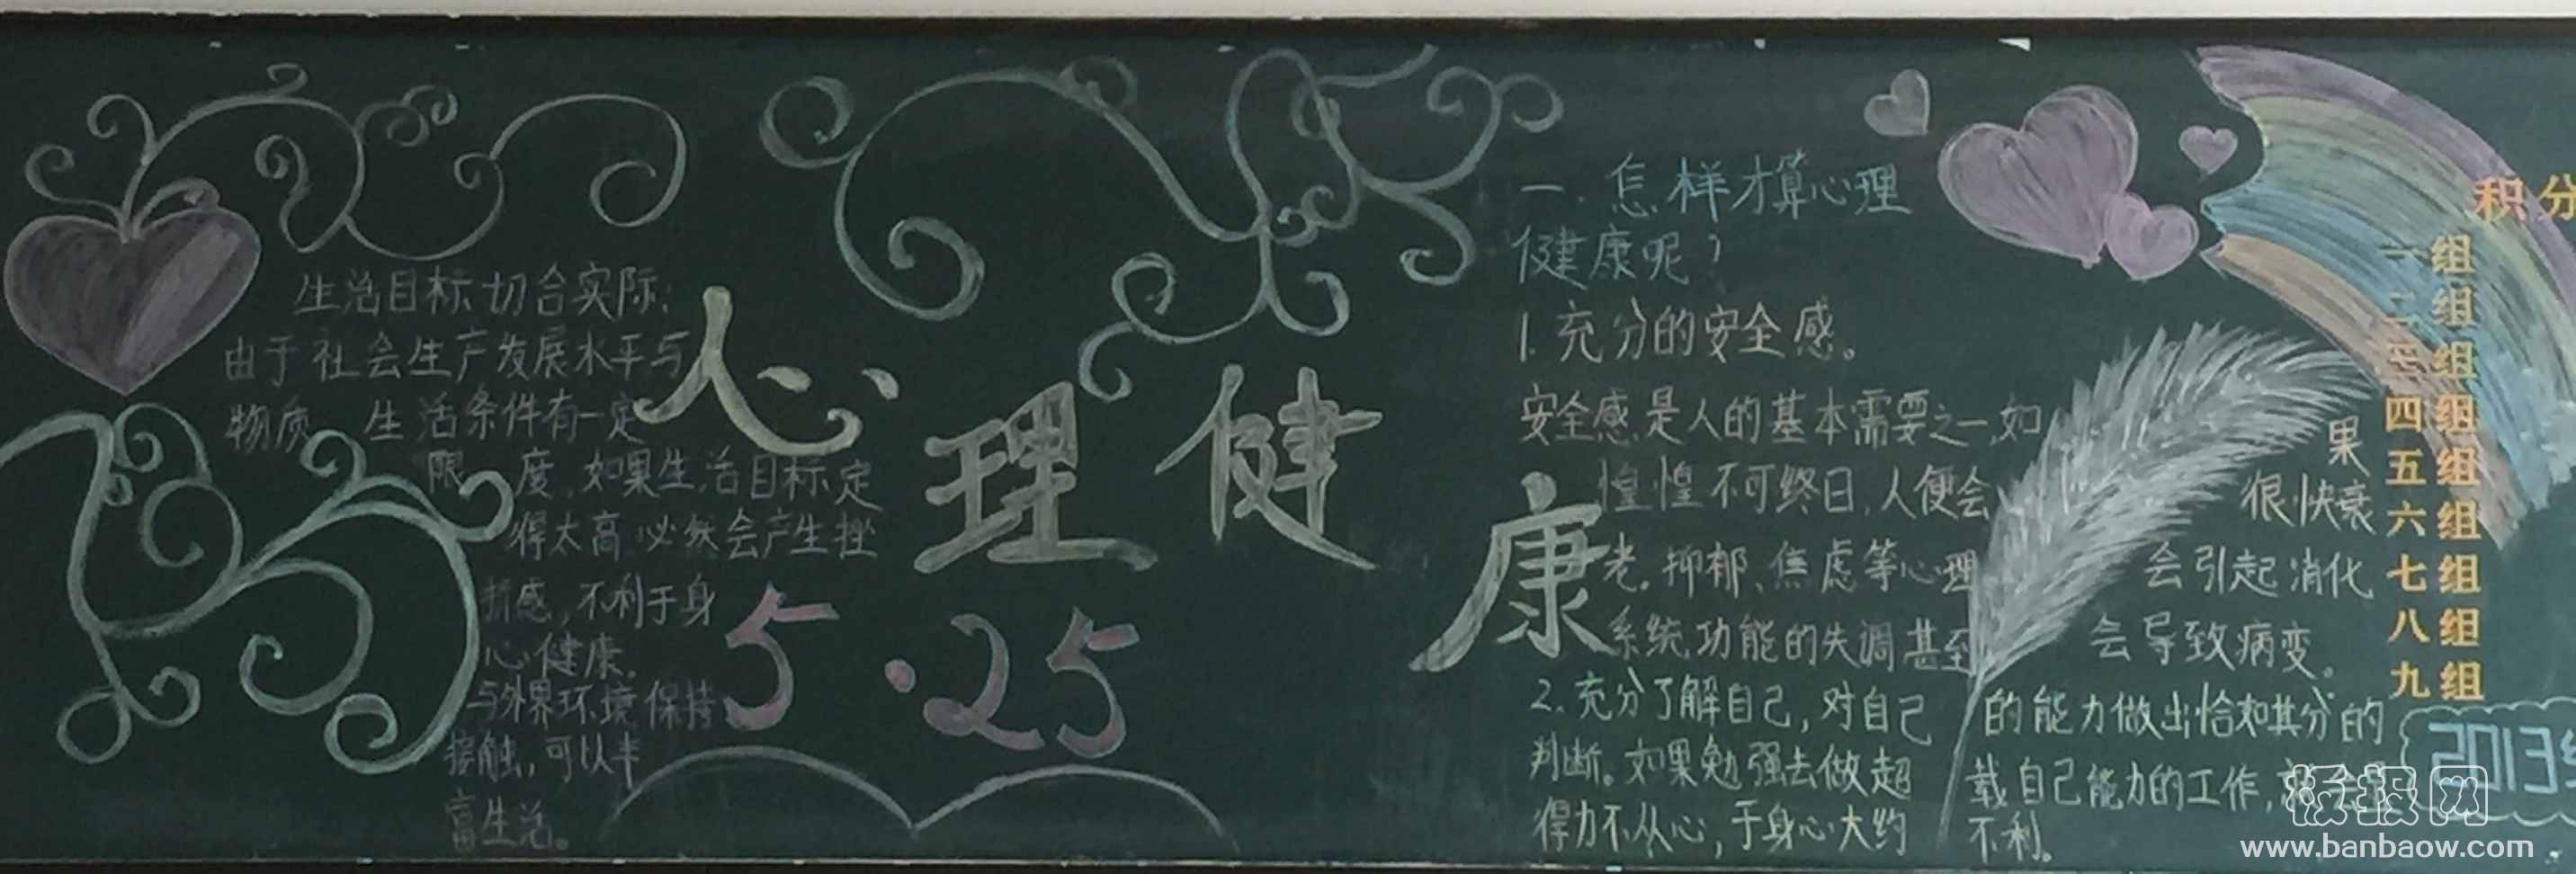 生活目标切合实际:
由于社会生产发展水平与
物质 生活条件有一定
限 度,如果生活目标定
得太高必然会产生挫
折感,不利于身
心健康。
与外界环境保持
接触,可以丰
富生活。
心理健康
5·25
一.怎样才算心理
健康呢?
1.充分的安全感。
安全感是人的基本需要之一,如果
惶惶不可终日,人便会很快衰
老。抑郁、焦虑等心理会引起消化
系统功能的失调甚至会导致病变。
2.充分了解自己,对自己的能力做出恰如其分的
判断。如果勉强去做超载自己能力的工作,
得力不从心,于身心大约不利。
积分
一组
二组
三组
四组
五组
六组
七组
八组
九组
板报网
www.banbaow.com